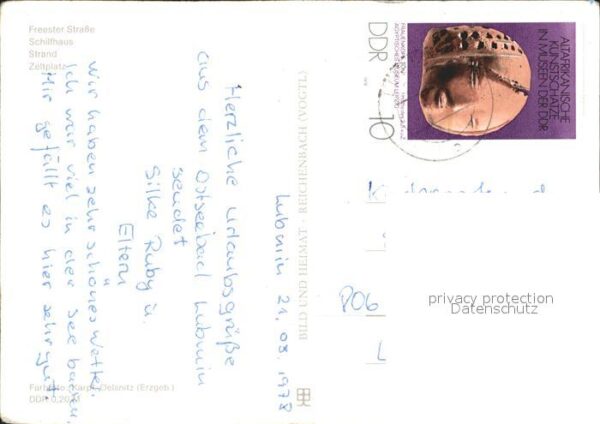 Freester Straße
Schilfhaus
Strand
Zeltplatz
Lubmin 21.08.1978
Herzliche Urlaubsgrüße
aus dem Ostseebad Lubmin
sendet
Silke Ruby u.
Eltern
Wir haben sehr schönes Wetter.
Ich war viel in der See baden.
Mir gefällt es hier sehr gut.
Farbfoto: Karpf, Oelsnitz (Erzgeb.)
DDR 0,20 M
BILD UND HEIMAT · REICHENBACH (VOGTL)
DDR
10
ALTAFRIKANISCHE
KUNSTSCHÄTZE
IN MUSEEN DER DDR
806
L
privacy protection
Datenschutz